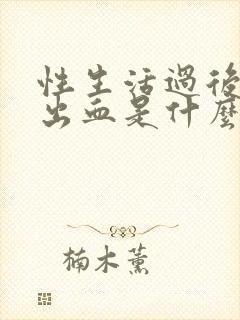 性生活過後
出血是什麼
楠木薰